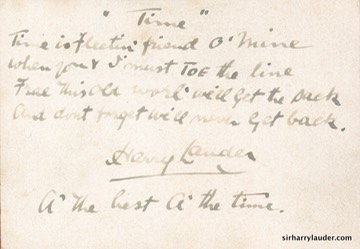 "Time"
Time is fleetin' friend O' Mine
When you & I must TOE the line
Frae This Old worl' we'll Get the Sack
And don't forget we'll never Get back.
Harry Lauder
A' The best A' the time.
sirharrylauder.com